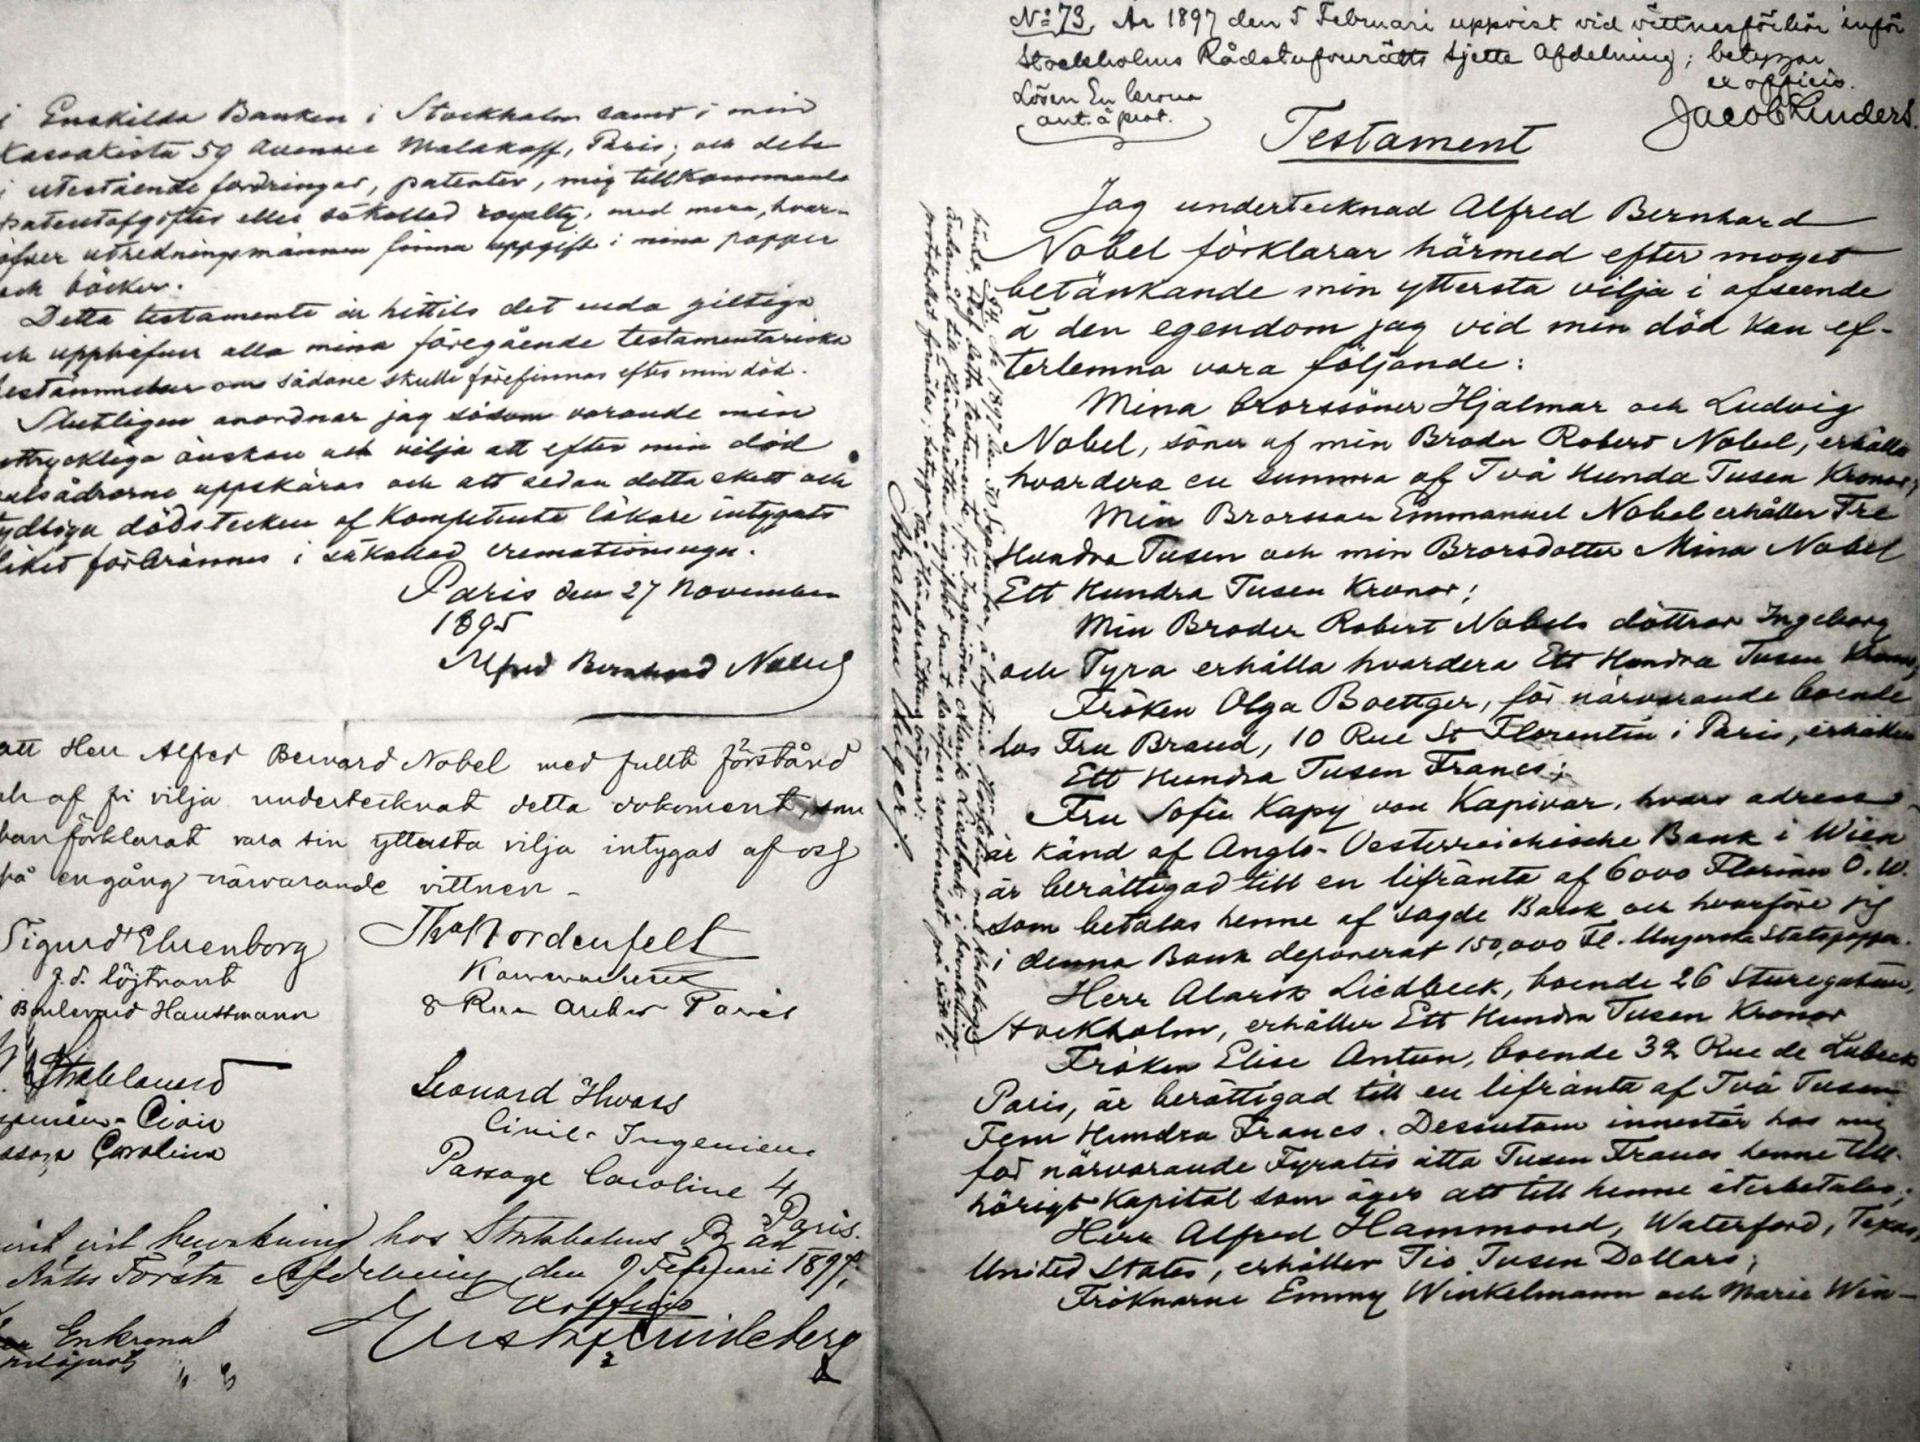 i Enskilda Banken i Stockholm samt i min
Kassakista 59 Avenue Malakoff, Paris; och dels
i utestående fordringar, patenter, mig tillkommande
patentafgifter eller såkallad royalty, med mera, hvar-
öfver utredningsmännen finna uppgift i mina papper
och böcker.
Detta testamente är hittils det enda giltiga
och upphäfver alla mina föregående testamentariska
bestämmelser om sådane skulle förefinnas efter min död.
Slutligen anordnar jag såsom varande min
uttryckliga önskan och vilja att efter min död
pulsådrorna uppskäras och att sedan detta skett och
tydliga dödstecken af Kompetenta läkare intygats
liket förbrännes i såkallad cremationsugn.
Paris den 27 November
1895
Alfred Bernhard Nobel
att Herr Alfred Bernard Nobel med fullt förstånd
och af fri vilja undertecknat detta dokument, som
han förklarat vara sin yttersta vilja intygas af oss
på en gång närvarande vittnen -
Sigurd Ehrenborg
f.d. löjtnant
Boulevard Haussmann
Strehlenert
Civil
Carolina
Ths Nordenfelt
Konstruktör
8 Rue Auber Paris
Leonard Hwass
Civil-Ingeniör
Passage Caroline 4
Paris.
vid bevakning hos Stockholms Råd
Rätts Första Afdelning den 9 Februari 1897;
Ex officio
En krona
No 73, År 1897 den 5 Februari uppvist vid vittnesförhör inför
Stockholms Rådstufvurätts sjette Afdelning; betygar
ex officio.
Lösen En krona
ant. å prot.
Jacob Linders.
Testament
Jag undertecknad Alfred Bernhard
Nobel förklarar härmed efter moget
betänkande min yttersta vilja i afseende
å den egendom jag vid min död kan ef-
terlemna vara följande:
Mina Brorssöner Hjalmar och Ludvig
Nobel, söner af min Broder Robert Nobel, erhålla
hvardera en summa af Två Hundra Tusen Kronor;
Min Brorsson Emmanuel Nobel erhåller Tre
Hundra Tusen och min Brorsdotter Mina Nobel
Ett Hundra Tusen Kronor;
Min Broder Robert Nobels döttrar Ingeborg
och Tyra erhålla hvardera Ett Hundra Tusen Kronor;
Fröken Olga Boettger, för närvarande boende
hos Fru Brand, 10 Rue St Florentin i Paris, erhåller
Ett Hundra Tusen Francs;
Fru Sofie Kapy von Kapivar, hvars adress
är känd af Anglo-Oesterreichische Bank i Wien
är berättigad till en lifränta af 6000 Florins Ö.W.
som betalas henne af sagde Bank och hvarföre jag
i denna Bank deponerat 150,000 Fl. i Ungerska Statspapper.
Herr Alarik Liedbeck, boende 26 Sturegatan,
Stockholm, erhåller Ett Hundra Tusen Kronor
Fröken Elise Antun, boende 32 Rue de Lubeck
Paris, är berättigad till en lifränta af Två Tusen
Fem Hundra Francs. Dessutom innestår hos mig
för närvarande Fyratio åtta Tusen Francs henne till-
hörigt Kapital som äger att till henne återbetalas;
Herr Alfred Hammond, Waterford, Texas,
United States, erhåller Tio Tusen Dollars;
Fröknarne Emmy Winkelmann och Marie Win-